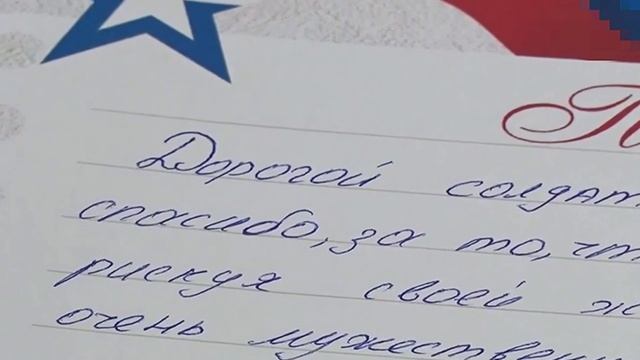 П
Дорогой солдат
спасибо, за то, чт
рискуя своей ж
очень мужествен